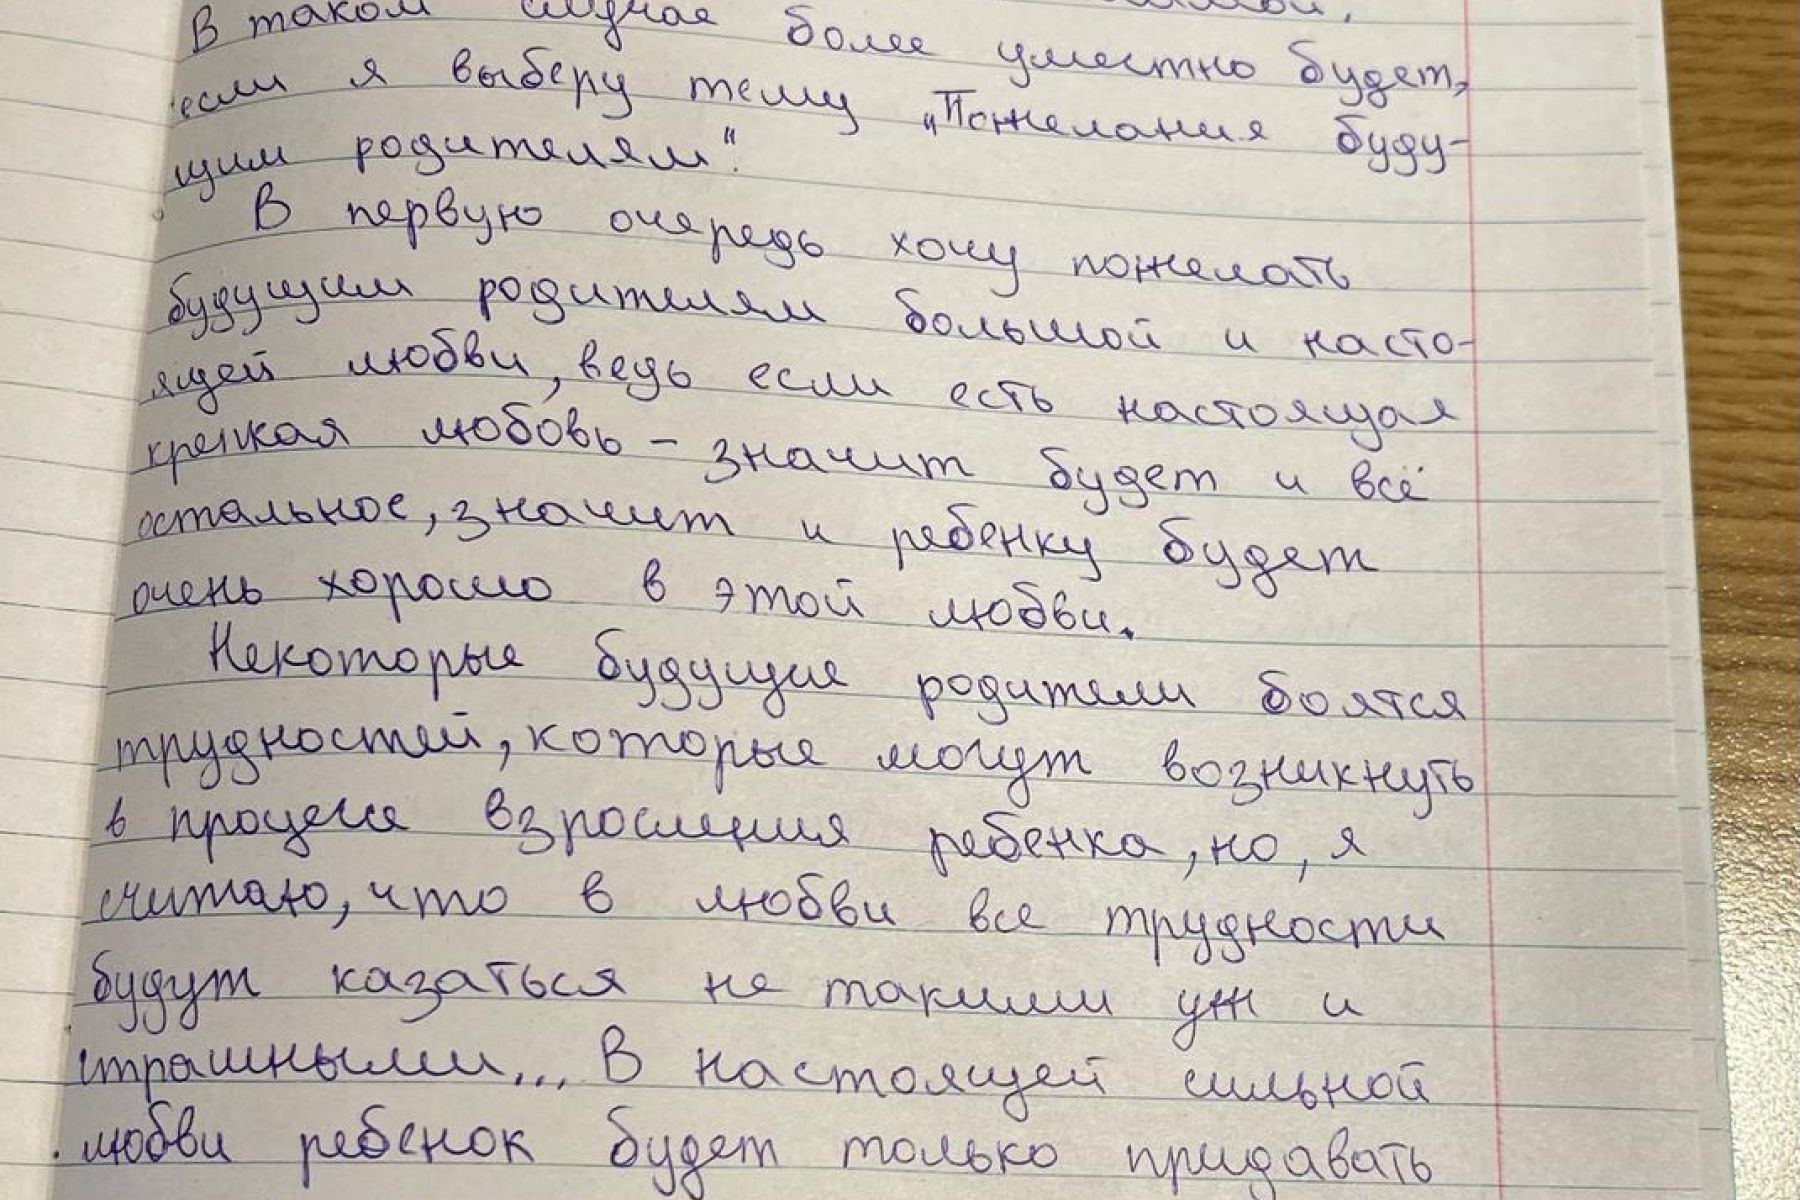 В таком случае более уместно будет,
если я выберу тему „Пожелания буду-
щим родителям".
В первую очередь хочу пожелать
будущим родителям большой и насто-
ящей любви, ведь если есть настоящая
крепкая любовь – значит будет и всё
остальное, значит и ребенку будет
очень хорошо в этой любви.
Некоторые будущие родители боятся
трудностей, которые могут возникнуть
в процессе взросления ребенка, но, я
считаю, что в любви все трудности
будут казаться не такими уж и
страшными... В настоящей сильной
любви ребенок будет только придавать